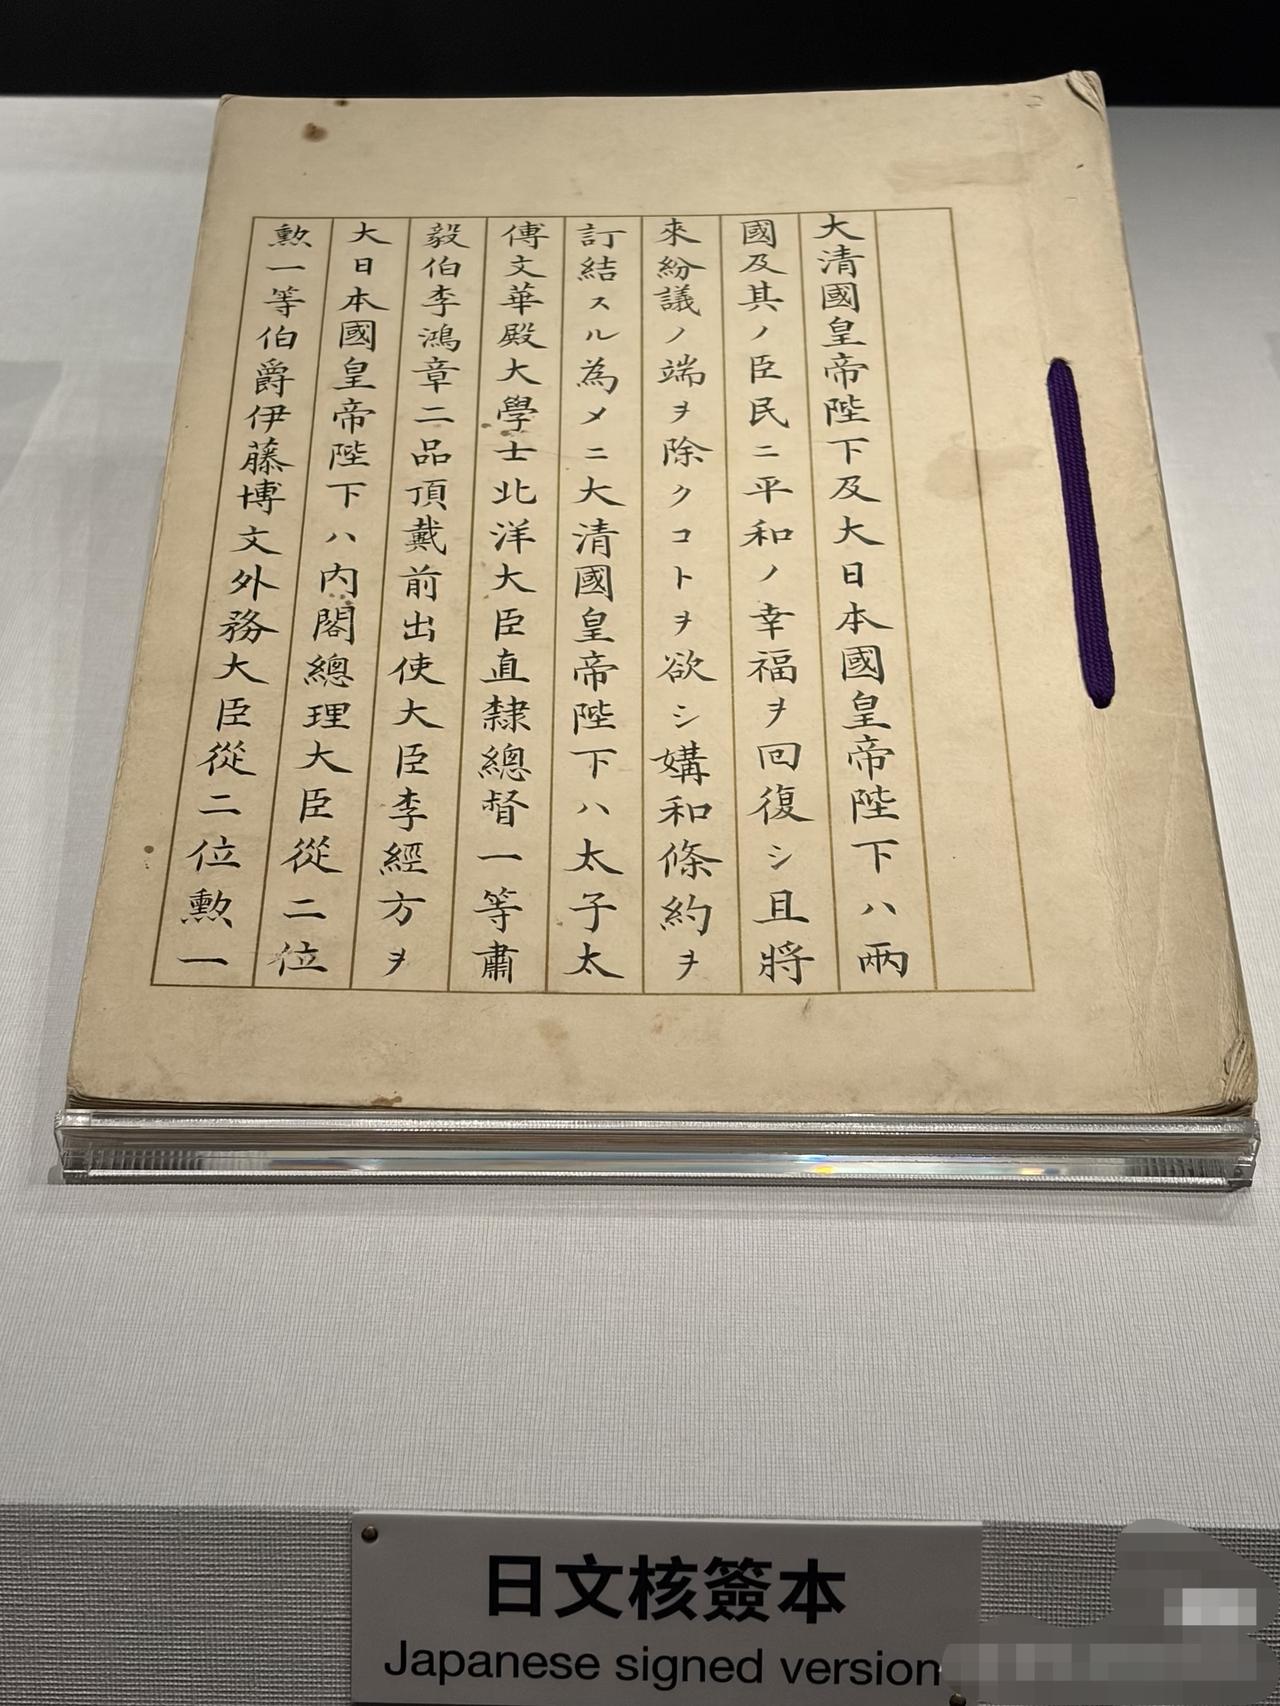 大清國皇帝陛下及大日本國皇帝陛下ハ兩
國及其ノ臣民ニ平和ノ幸福ヲ回復シ且將
來紛議ノ端ヲ除クコトヲ欲シ媾和條約ヲ
訂結スル為メニ大清國皇帝陛下ハ太子太
傅文華殿大學士北洋大臣直隸總督一等肅
毅伯李鴻章二品頂戴前出使大臣李經方ヲ
大日本國皇帝陛下ハ內閣總理大臣從二位
勲一等伯爵伊藤博文外務大臣從二位勲一
日文核簽本
Japanese signed version